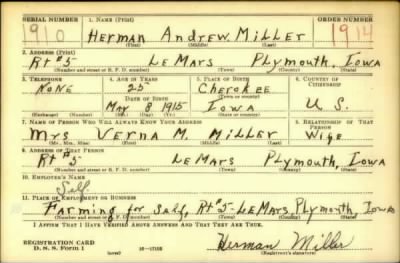 SERIAL NUMBER 1. NAME (Print) ORDER NUMBER
1910 HERMAN ANDREW MILLER 1914
(First) (Middle) (Last)
2. ADDRESS (Print)
Rt #5 LeMars Plymouth, Iowa
(Number and street or R. F. D. number) (Town) (County) (State)
3. TELEPHONE 4. AGE IN YEARS 5. PLACE OF BIRTH 6. COUNTRY OF CITIZENSHIP
NONE 25 Cherokee
DATE OF BIRTH (Town or county)
May 8 1915 Iowa U S.
(Exchange) (Number) (Mo.) (Day) (Yr.) (State or country)
7. NAME OF PERSON WHO WILL ALWAYS KNOW YOUR ADDRESS 8. RELATIONSHIP OF THAT PERSON
Mrs Verna M. Miller Wife
(Mr., Mrs., Miss) (First) (Middle) (Last)
9. ADDRESS OF THAT PERSON
Rt #5 LeMars Plymouth, Iowa
(Number and street or R. F. D. number) (Town) (County) (State)
10. EMPLOYER'S NAME
Self
11. PLACE OF EMPLOYMENT OR BUSINESS
Farming for self, Rt #5- LeMars, Plymouth, Iowa
(Number and street or R. F. D. number) (Town) (County) (State)
I AFFIRM THAT I HAVE VERIFIED ABOVE ANSWERS AND THAT THEY ARE TRUE.
Herman Miller
REGISTRATION CARD
D. S. S. Form 1 (over) 16-17105 (Registrant's signature)